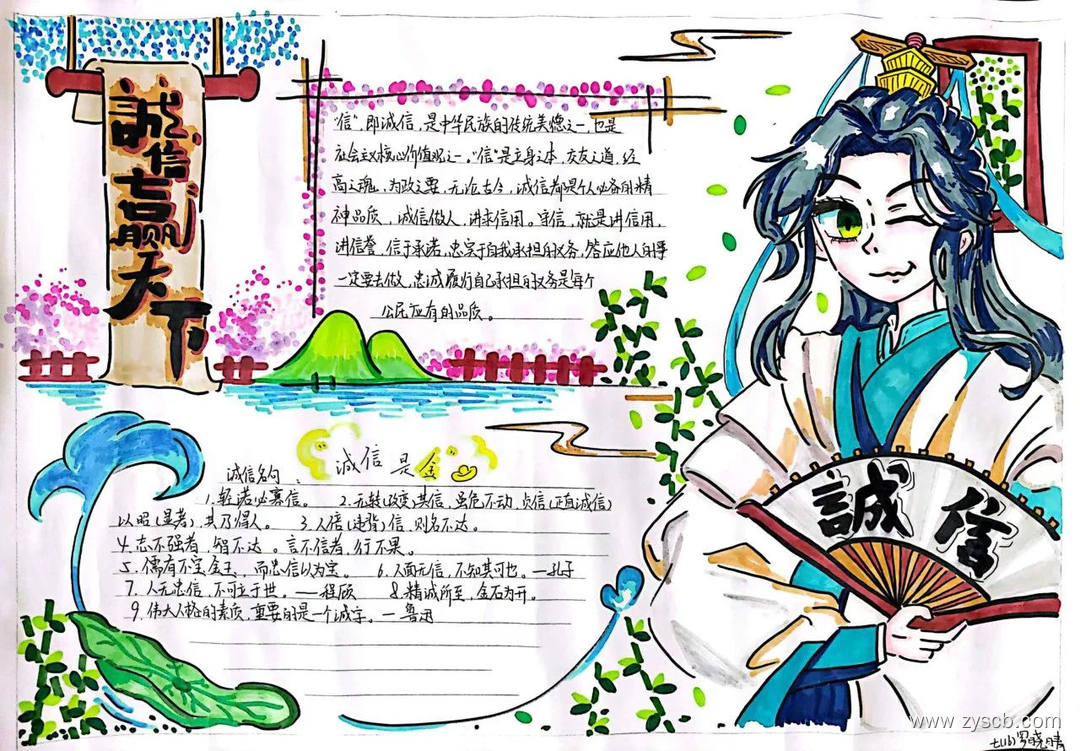 誠信赢天下
"信",即诚信,是中华民族的传统美德之一,也是
社会主义核心价值观之一,"信"是立身之本,交友之道,经
商之魂,为政之要,无论古今,诚信都是个人必备的精
神品质,诚信做人,讲求信用。守信,就是讲信用,
进信誉,信于承诺,忠实于自我承担的义务,答应他人的事
一定要去做,忠诚履行自己承担的义务是每个
公民应有的品质。
诚信是金
诚信名句:
1.轻诺必寡信。 2.无转(改变)其信,虽危不动,贞信(正直诚信)
以昭(显著),其乃得人。 3.人倍(违背)信,则名不达。
4.志不强者,智不达。言不信者,行不果。
5.儒有不宝金玉,而忠信以为宝。 6.人而无信,不知其可也。—孔子
7.人无忠信,不可立于世。——程颐 8.精诚所至,金石为开。
9.伟大人格的素质,重要的是一个诚字。—鲁迅
誠信
www.zyscb.com